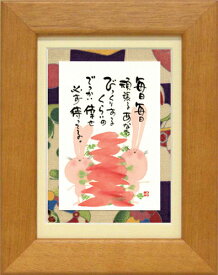 毎日毎日
頑張るあなた
びっくりする
くらいの
でっかい幸せ
必ず待ってるよ。